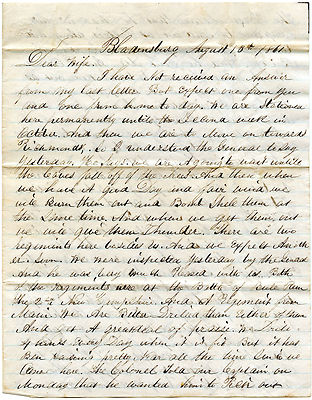 Bladensburg August 15th 1861
Dear Wife.
I have Not received an Answer
from my last letter But Expect one from you
and one from home to day. we are Stationed
here permanently untill the Second week in
October. And then we are to Move on towards
Richmond, So I understood the General to Say
Yesterday. He Says we are A going to wait untill
the leaves fall off of the Trees. And then when
we have A good Day and fair wind we
will Burn them out and Bomb Shell them at
the Same time. And where we get Them, out
we will give them Thunder. There are two
regiments here besides us. And we Expect Anoth
er Soon. We were inspected Yesterday by the General
And he was very much Pleased with us. Both
of the regaments here at the battle of Bulls run
the 2nd New Hampshire. And A regement from
Main. We Are Better Drilled than Either of them
And get A greatdeal of praise. We Drile
hours Every Day when it is fit But it has
Ben raining pretty near all the time Since we
Came here. The Colonel Told our Captain on
Monday that he wanted him to Pick out